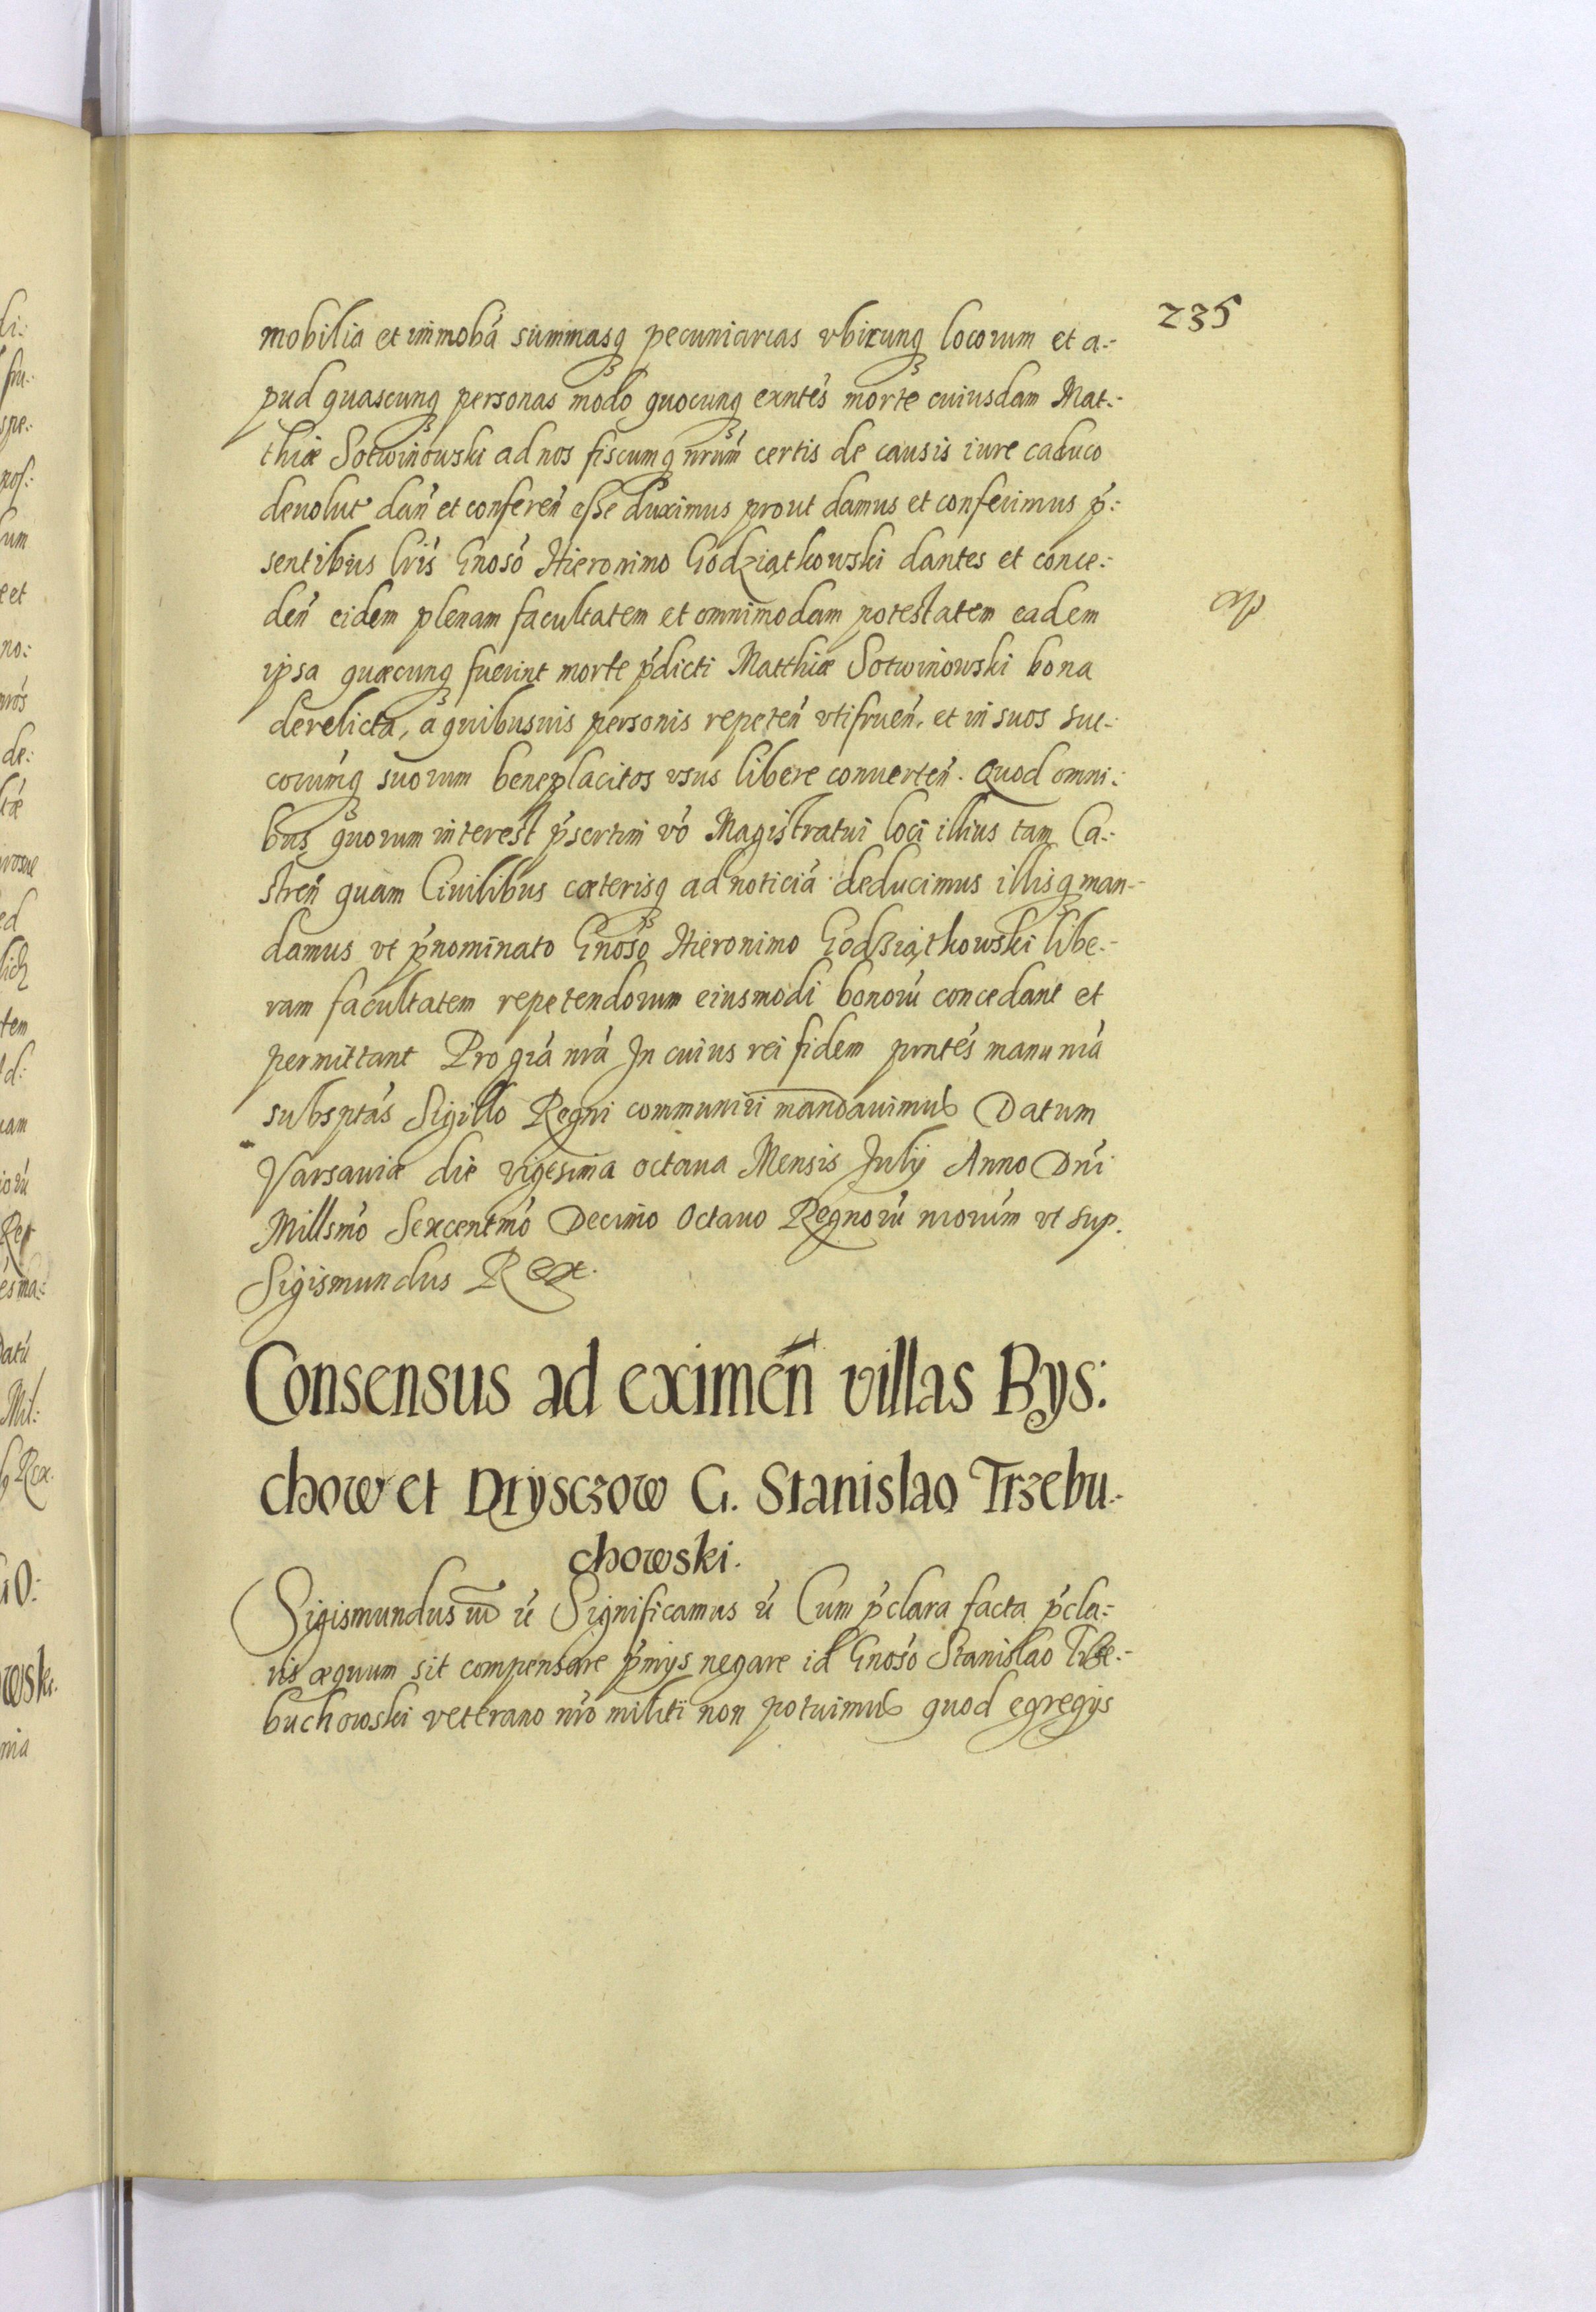 235
mobilia et immobã summasq₃ pecuniarias vbicunq₃ locorum et a:
pud quascunq₃ personas modo quocunq₃ exntes morte cuiusdam Mat:
thiæ Sotwinowski ad nos fiscumq₃ nrũm certis de causis iure caduco
deuolut dañ et confereñ esse duximus prout damus et conferimus p̃:
sentibus lris Gnoso Hieronimo Godziątkowski dantes et conce:
deñ eidem plenam facultatem et omnimodam potestatem eadem
ipsa quæcunq₃ fuerint morte p̃dicti Matthiæ Sotwinowski bona
derelicta, a quibusuis personis repeteñ vtifrueñ, et in suos suc:
corumq₃ suorum beneplacitos vsus libere conuerteñ. Quod omni:
bus quorum interest p̃sertim vo Magistratui loci illius tam Ca:
streñ quam Ciuilibus cæterisq₃ ad noticiã deducimus illisq₃ man:
damus vt p̃nominato Gnoso Hieronimo Godziątkowski libe:
ram facultatem repetendorum eiusmodi bonorũ concedant et
permittant Pro grã nrã In cuius rei fidem prntes manu nrã
subsptas Sigillo Regni communiri mandauimus Datum
Varsauiæ die vigesima octaua Mensis Julij Anno Dni
Millsmo Sexcentmo Decimo Octauo Regnorũ nrorum vt sup.
Sigismundus Rex.
Consensus ad eximeñ villas Bys:
chow et Drysczow G. Stanislao Trzebu:
chowski.
Sigismundus Significamus Cum p̃clara facta p̃cla:
ris æquum sit compensare p̃mijs negare id Gnoso Stanislao Trze:
buchowski veterano nro militi non potuimus quod egregijs